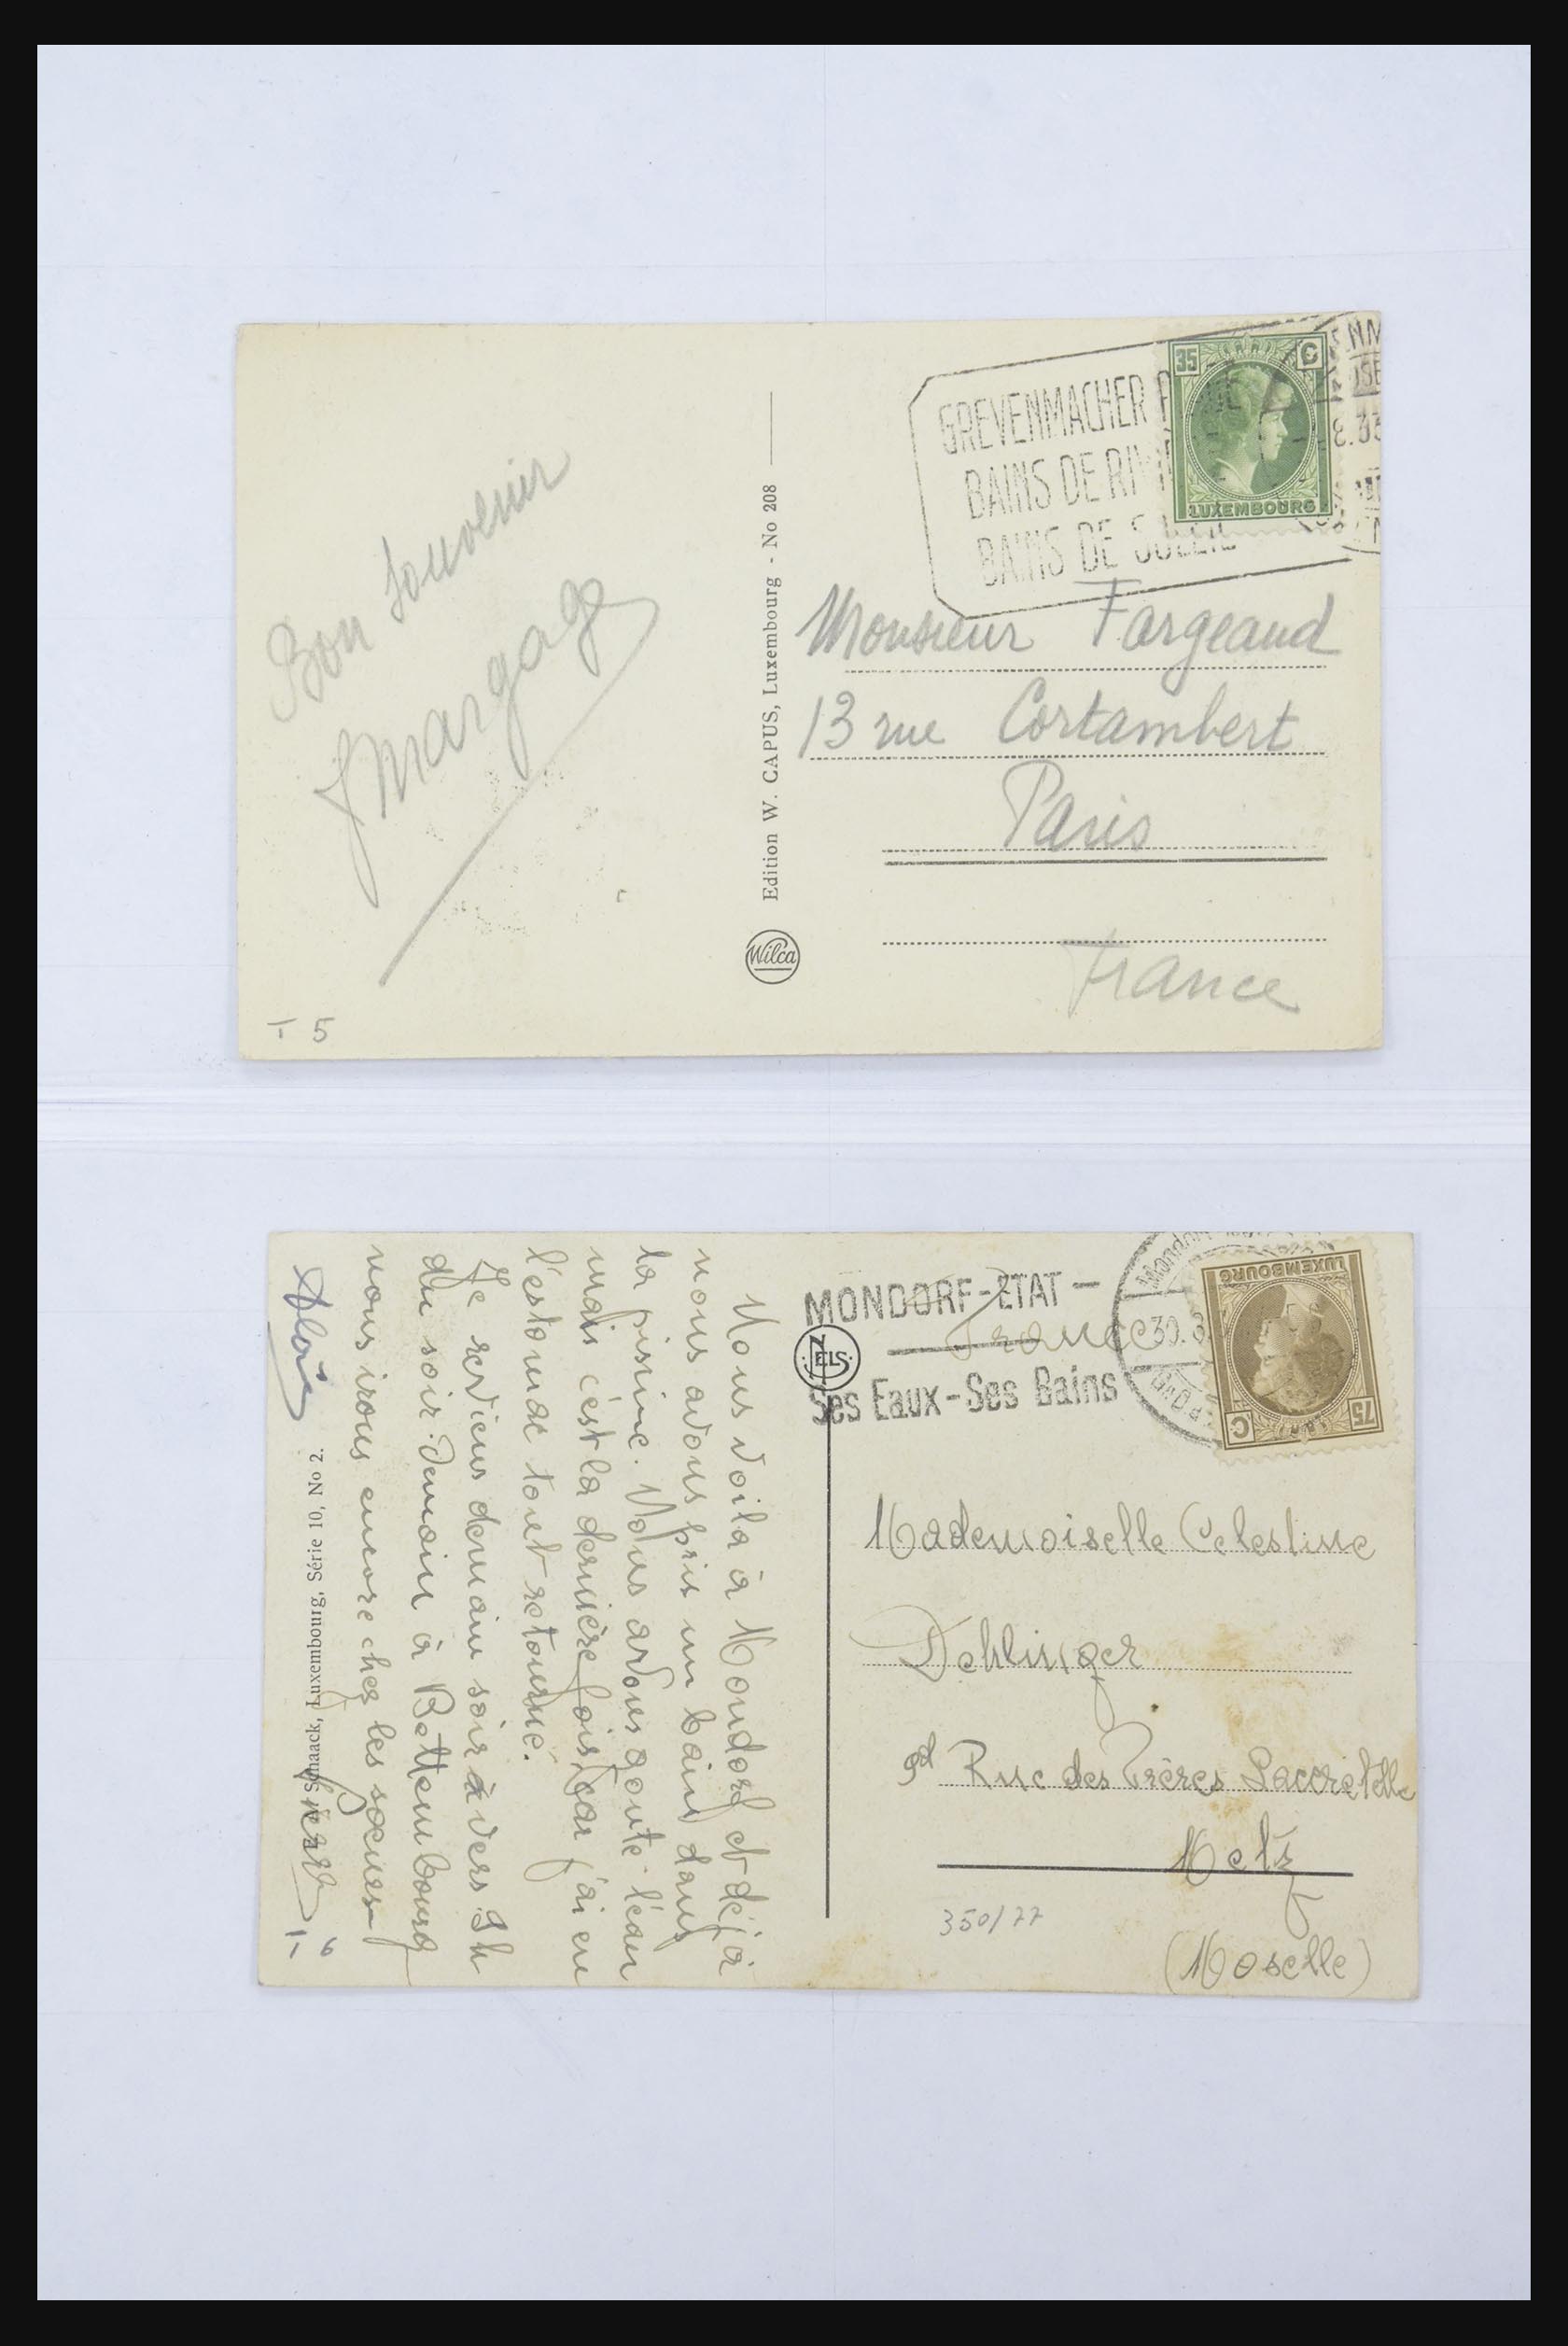 35 C
LUXEMBOURG
GREVENMACHER
BAINS DE
BAINS DE SOLEIL
Bon souvenir
Edition W. CAPUS, Luxembourg - No 208
Wilca
Monsieur Fargeaud
13 rue Cortambert
Paris
France
T 5
MONDORF-ÉTAT —
France
Ses Eaux - Ses Bains
NELS
30.
LUXEMBOURG
75 C
Nous voilà à Mondorf et déjà
nous avons pris un bain dans
la piscine. Nous avons gouté l'eau
mais c'est la dernière fois, car j'ai eu
l'estomac tout retourné.
Je reviens demain soir à vers 9h
du soir. Demain à Bettembourg
nous irons encore chez les soeurs
Schaack, Luxembourg, Série 10, No 2.
Mademoiselle Celestine
Dehlinger
9d Rue des Frères Lacretelle
Metz
(Moselle)
350/77
T 6